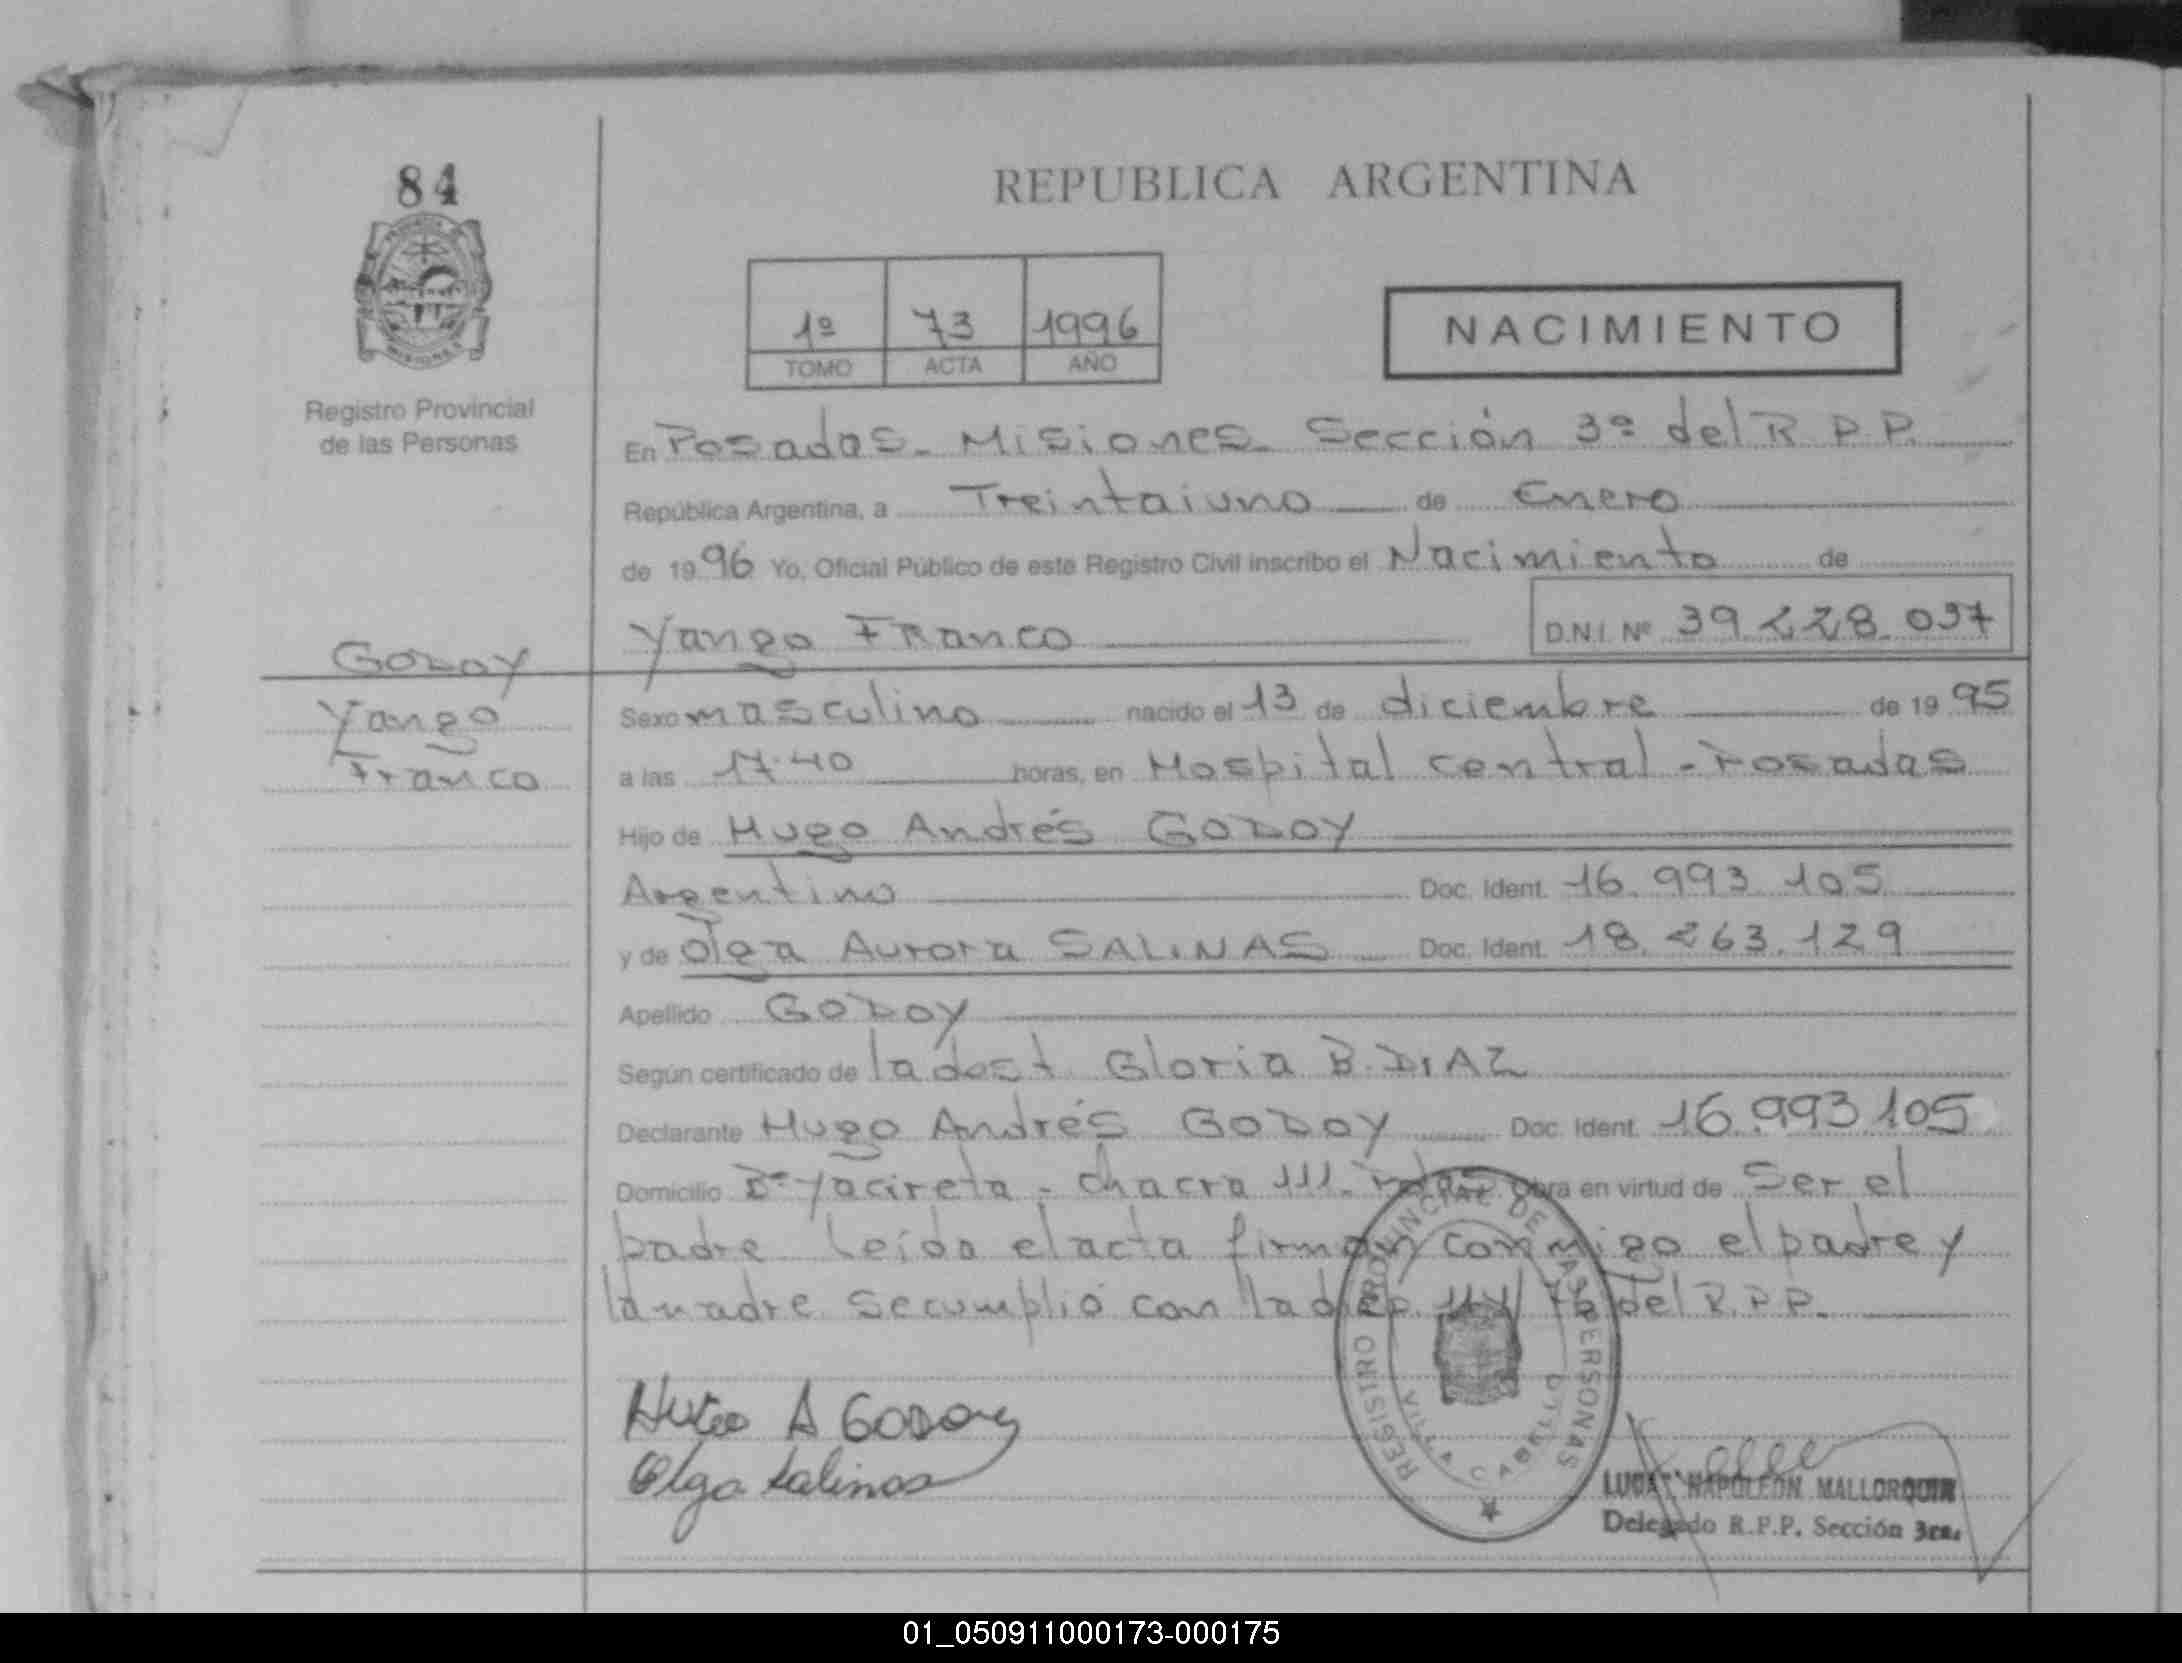 84
REPUBLICA ARGENTINA
1º 73 1996
TOMO ACTA AÑO
NACIMIENTO
Registro Provincial
de las Personas
En Posadas - Misiones - Sección 3ª del R.P.P.
República Argentina, a Treintaiuno de Enero
de 1996 Yo, Oficial Público de este Registro Civil inscribo el Nacimiento de
Yango Franco D.N.I. Nº 39.228.037
GODOY
Yango
Franco
Sexo masculino nacido el 13 de diciembre de 1995
a las 17.40 horas, en Hospital central - Posadas
Hijo de Hugo Andrés GODOY
Argentino Doc. Ident. 16.993.105
y de Olga Aurora SALINAS Doc. Ident. 18.263.129
Apellido GODOY
Según certificado de la dost Gloria B. DIAZ
Declarante Hugo Andrés GODOY Doc. Ident. 16.993.105
Domicilio Bº Yacireta - chacra 111. Obra en virtud de Ser el
padre Leída el acta firman conmigo el padre y
la madre se cumplió con la del R.P.P.
REGISTRO PROVINCIAL DE LAS PERSONAS
VILLA CABELLO
Hugo A Godoy
Olga Salinas
NAPOLEON MALLORQUIN
Delegado R.P.P. Sección 3ra.
01_050911000173-000175